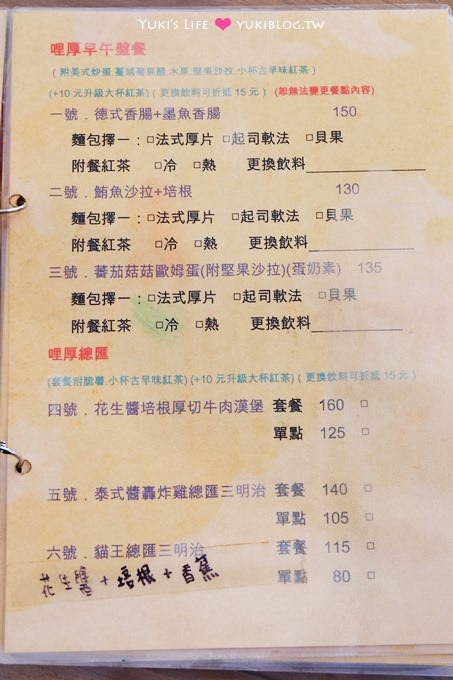 Yuki's Life ♥ yukiblog.tw
哩厚早午盤餐
(附美式炒蛋.蔓越莓果醋.水果.堅果沙拉.小杯古早味紅茶)
(+10 元升級大杯紅茶)(更換飲料可折抵 15 元) (恕無法變更餐點內容)
一號．德式香腸+墨魚香腸 150
麵包擇一：□法式厚片 □起司軟法 □貝果
附餐紅茶 □冷 □熱 更換飲料____________
二號．鮪魚沙拉+培根 130
麵包擇一：□法式厚片 □起司軟法 □貝果
附餐紅茶 □冷 □熱 更換飲料____________
三號．蕃茄菇菇歐姆蛋(附堅果沙拉)(蛋奶素) 135
麵包擇一：□法式厚片 □起司軟法 □貝果
附餐紅茶 □冷 □熱 更換飲料____________
哩厚總匯
(套餐附脆薯.小杯古早味紅茶) (+10 元升級大杯紅茶)(更換飲料可折抵 15 元)
四號．花生醬培根厚切牛肉漢堡 套餐 160 □
單點 125 □
五號．泰式醬轟炸雞總匯三明治 套餐 140 □
單點 105 □
六號．貓王總匯三明治 套餐 115 □
花生醬+培根+香蕉 單點 80 □